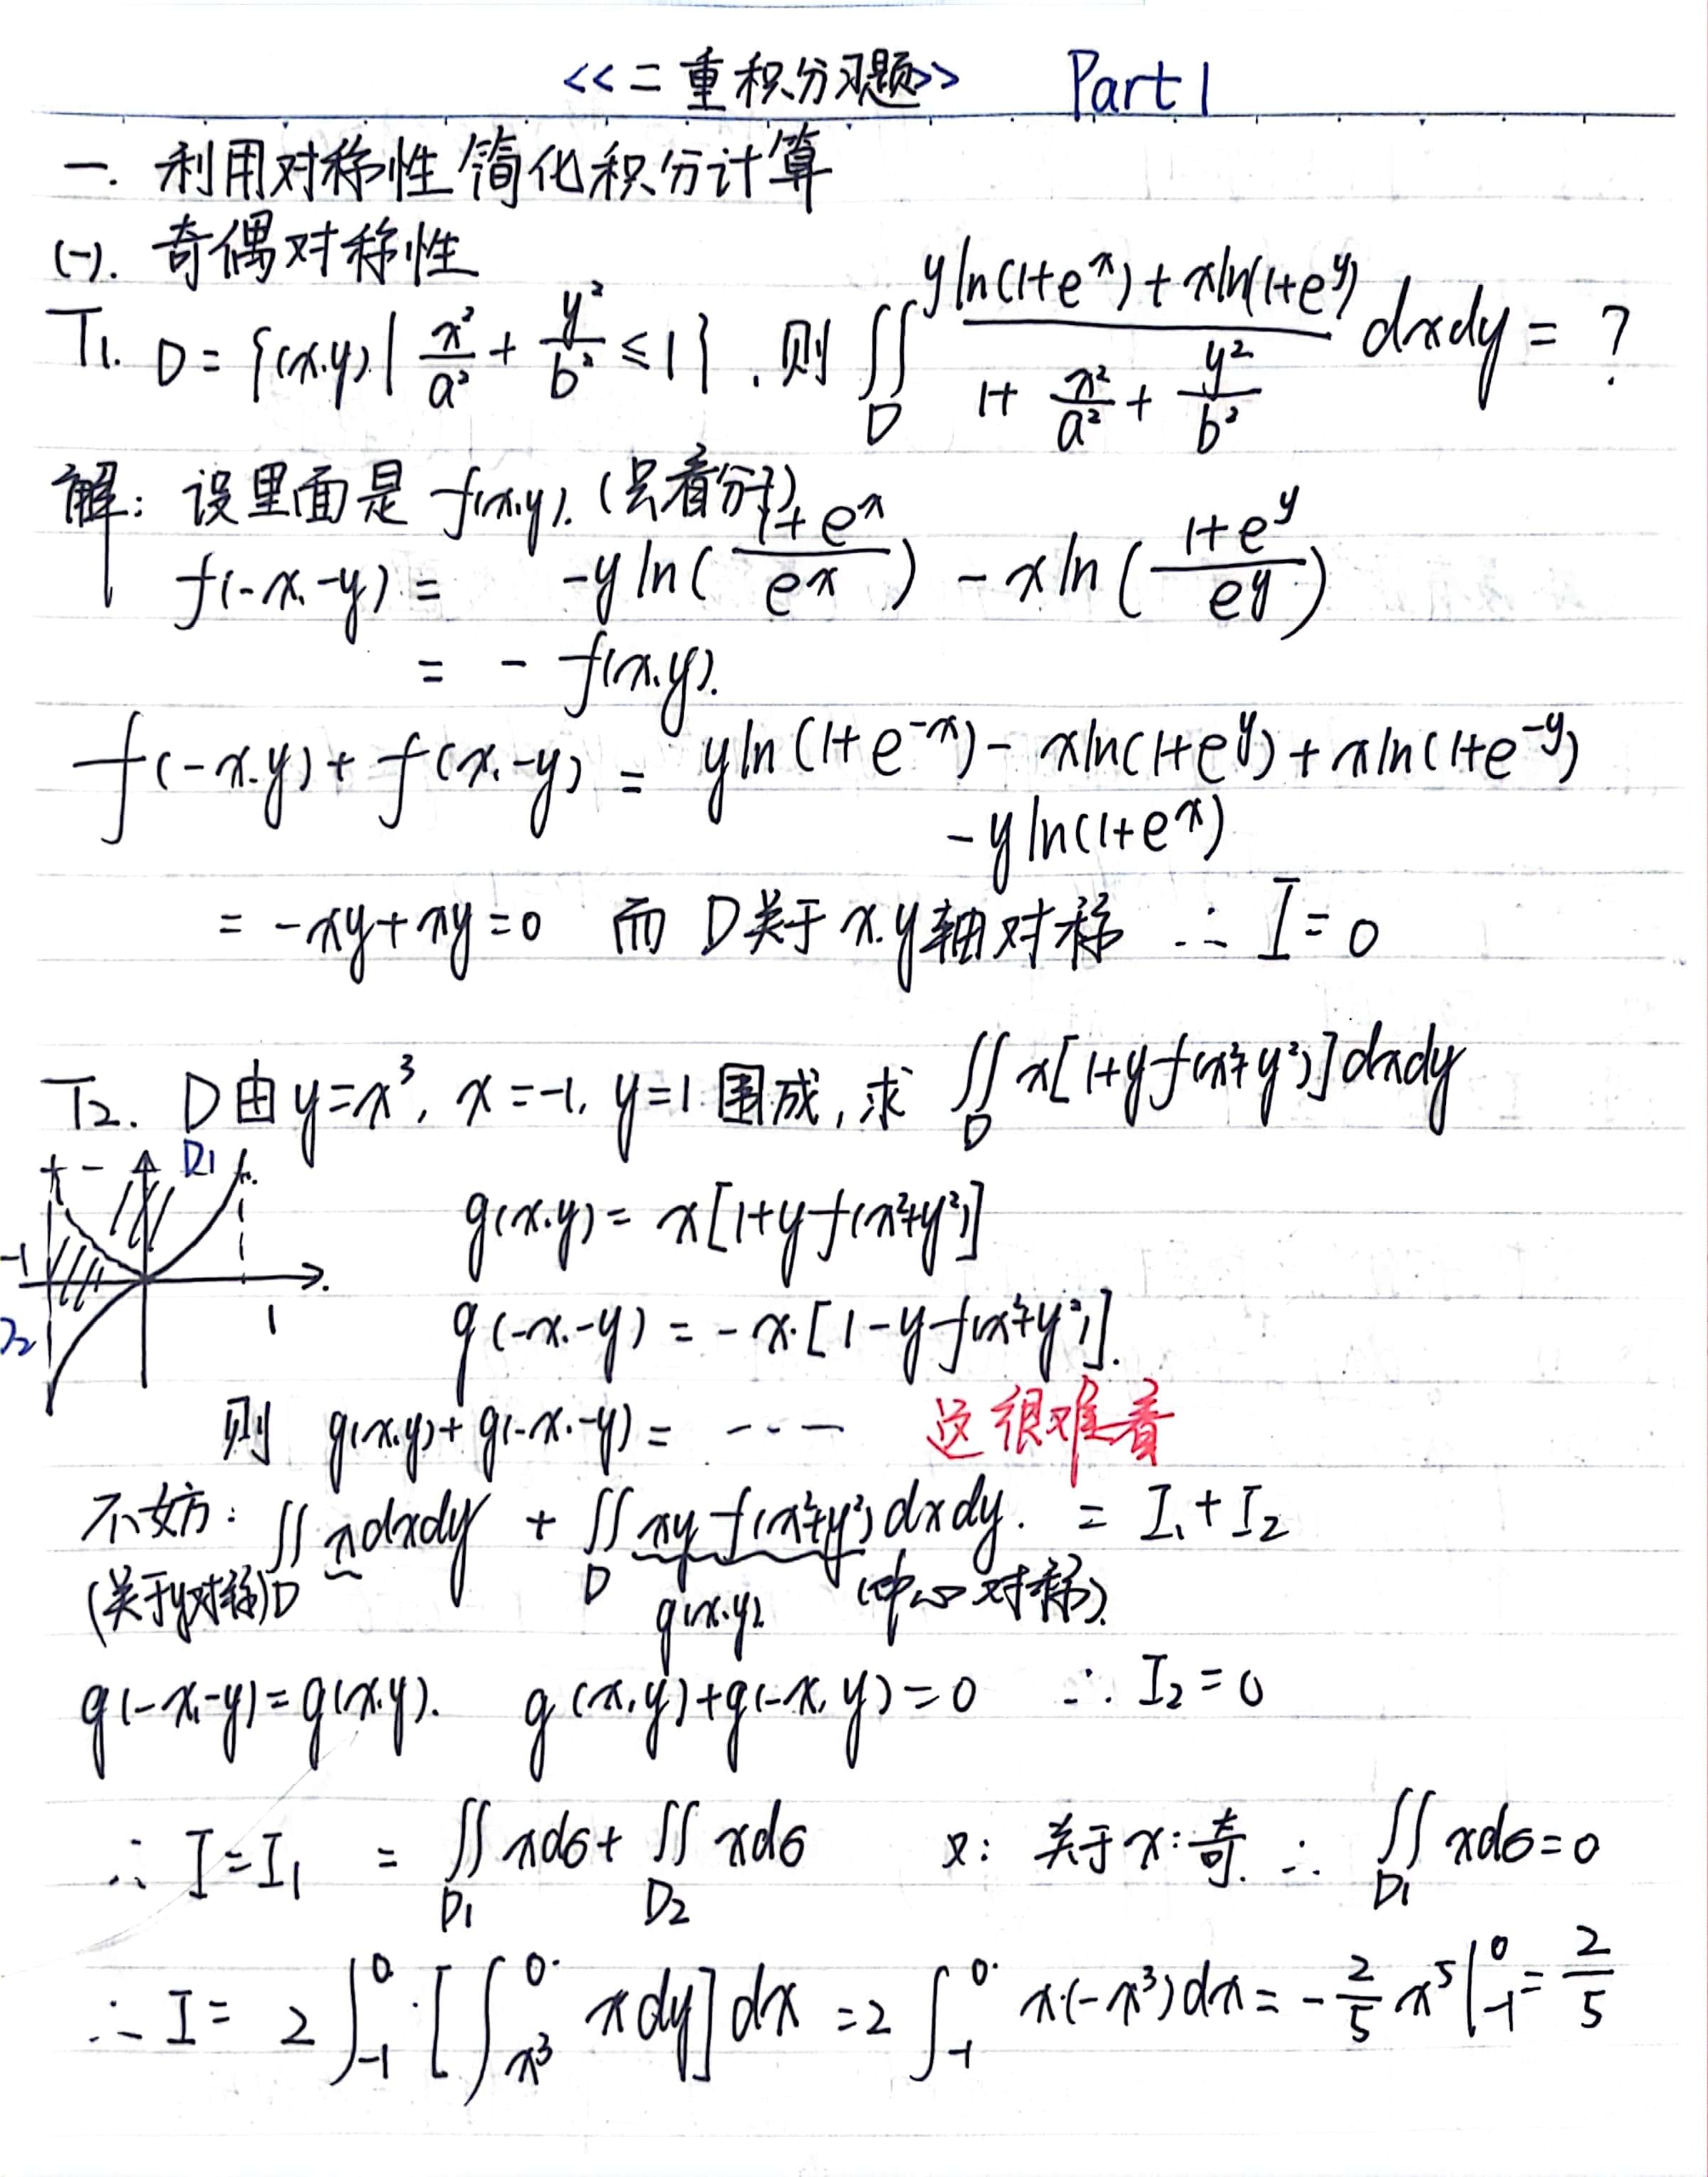 <<二重积分习题>> Part 1
一. 利用对称性简化积分计算
(一). 奇偶对称性
T1. D = {(x.y) | x²/a² + y²/b² ≤ 1}. 则 ∬_D (yln(1+e^x) + xln(1+e^y))/(1+ x²/a² + y²/b²) dxdy = ?
解: 设里面是 f(x.y). (只看分子)
f(-x.-y) = -yln((1+e^x)/e^x) - xln((1+e^y)/e^y)
= - f(x.y).
f(-x.y) + f(x.-y) = yln(1+e^-x) - xln(1+e^y) + xln(1+e^-y)
-yln(1+e^x)
= -xy+xy=0 而 D关于 x.y轴对称 ∴ I = 0
T2. D由 y=x³, x=-1, y=1 围成, 求 ∬_D x[1+yf(x²+y²)]dxdy
D1
-1
1
g(x.y) = x[1+yf(x²+y²)]
g(-x.-y) = -x.[1-yf(x²+y²)].
则 g(x.y)+g(-x.-y) = ---- 这很难看
不妨: ∬_D xdxdy + ∬_D xyf(x²+y²)dxdy. = I₁+I₂
(关于y对称) g(x.y) (中心对称).
g(-x,-y)=g(x.y). g(x,y)+g(-x,y)=0 ∴ I₂=0
∴ I=I₁ = ∬_D1 xdσ+ ∬_D2 xdσ 又: 关于x:奇. ∴ ∬_D1 xdσ=0
∴ I= 2∫_-1^0 [∫_x³^0 xdy]dx =2∫_-1^0 x·(-x³)dx = -2/5 x⁵|_-1^0 = 2/5